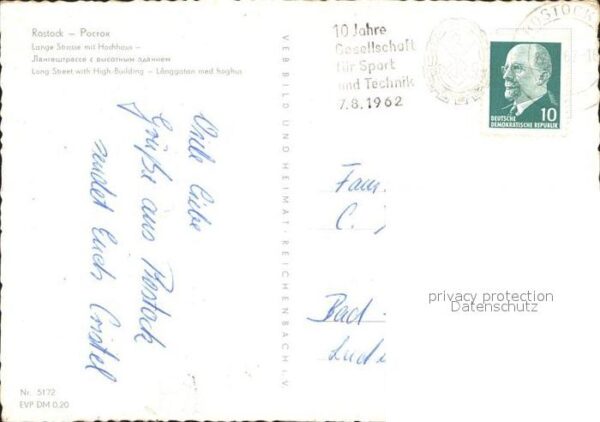 Rostock – Росток
Lange Strasse mit Hochhaus –
Лангештрассе с высотным зданием
Long Street with High-Building – Långgatan med höghus
10 Jahre
Gesellschaft
für Sport
und Technik
7.8.1962
ROSTOCK
10
DEUTSCHE
DEMOKRATISCHE REPUBLIK
VEB BILD UND HEIMAT · REICHENBACH I. V.
liebe
Grüße aus Rostock
sendet Euch Cristel
Fam.
C.
Bad
privacy protection
Datenschutz
Nr. 5172
EVP DM 0,20